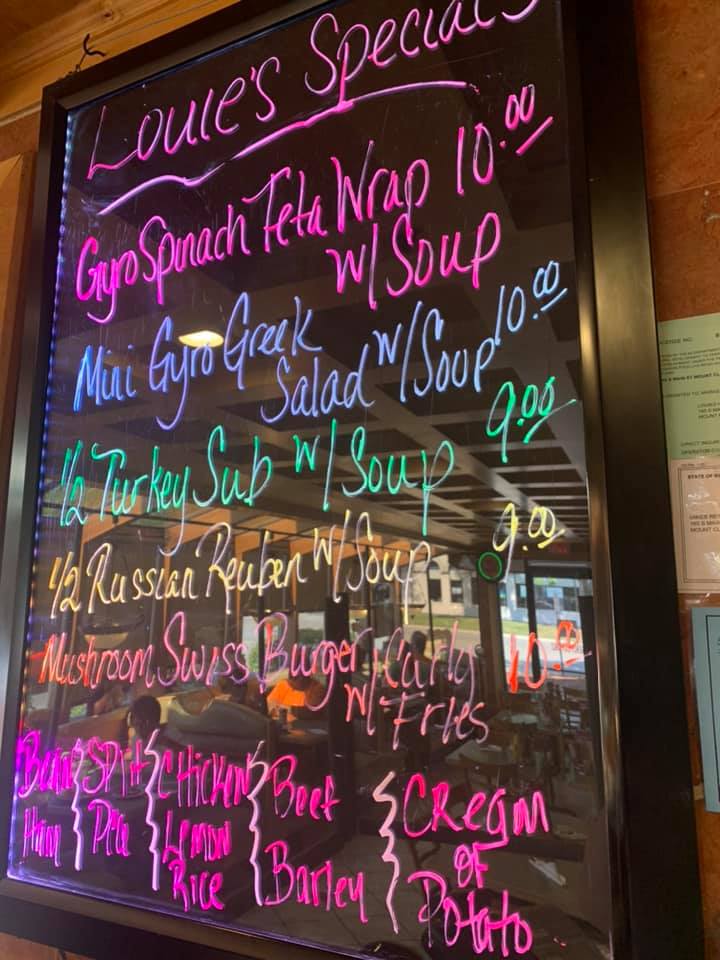 Louie's Specials
Gyro Spinach Feta Wrap 10.00
w/ Soup
Mini Gyro Greek
Salad w/ Soup 10.00
1/2 Turkey Sub w/ Soup 9.00
1/2 Russian Reuben w/ Soup 9.00
Mushroom Swiss Burger Curly 10.00
w/ Fries
Bean Split Chicken Beef Cream
Ham Pea Lemon Barley of
Rice Potato
STATE OF